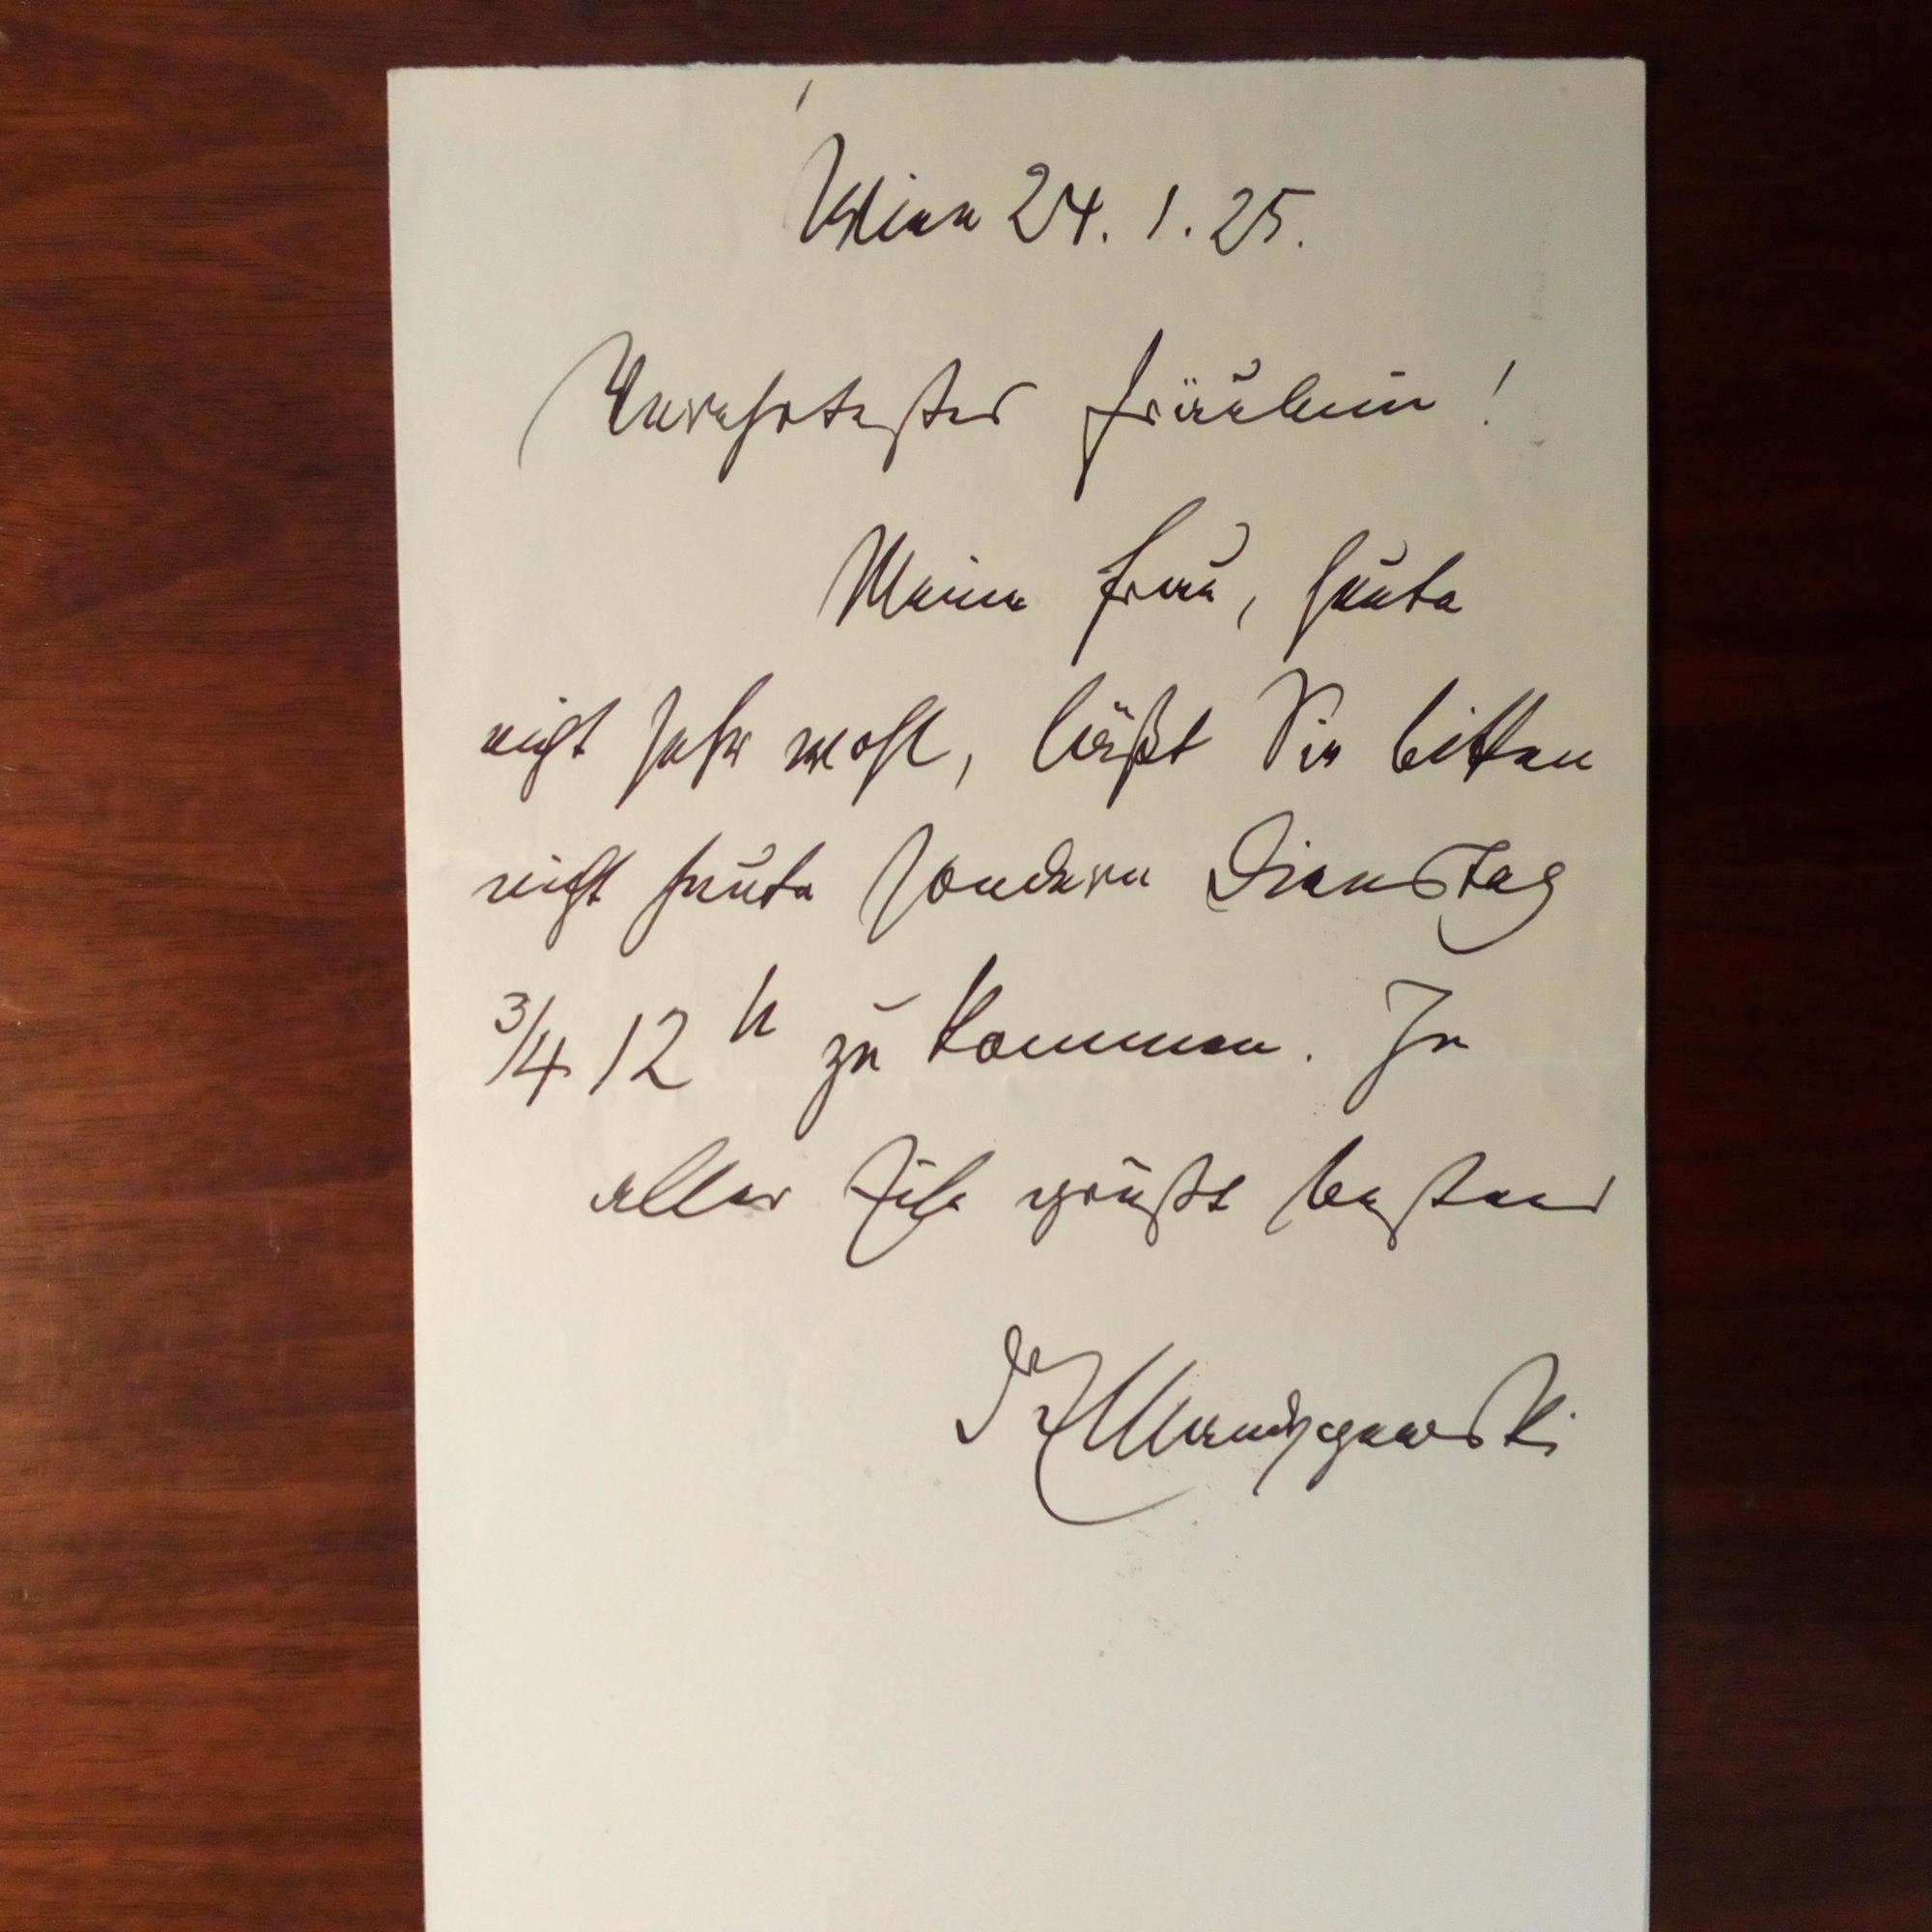 Wien 24. 1. 25.
Verehrtestes Fräulein!
Meine Frau, heute
nicht sehr wohl, läßt Sie bitten
nicht heute sondern Dienstag
3/4 12 h zu kommen. In
aller Eile grüßt bestens
Dr Mandyczewski